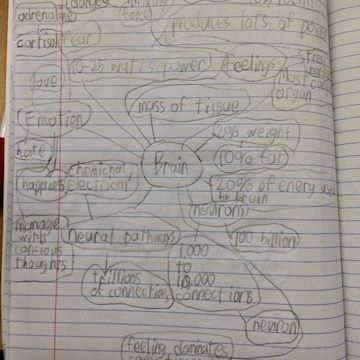 adrenaline
cortisol
fear
produces lots of power
love
10-25 watts power
feelings
organ
mass of tissue
Emotion
2% weight
hate
Brain
60% fat
chemichal
electrical
happiness
20% of energy used
by brain
neurons
manage
with
concious
thoughts
neural pathways
100 billion
1,000
to
10,000
connections
trillions
of connections
neuron
feeling dominates